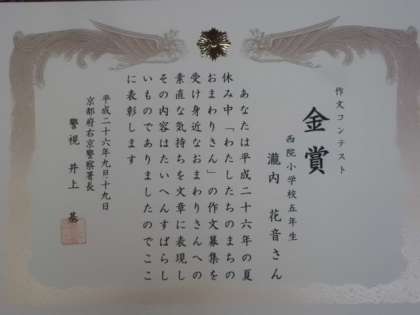 作文コンテスト
金賞
西院小学校五年生
瀧内 花音さん
あなたは平成二十六年の夏
休み中「わたしたちのまちの
おまわりさん」の作文募集を
受け身近なおまわりさんへの
素直な気持ちを文章に表現し
その内容はたいへんすばらし
いものでありましたのでここ
に表彰します
平成二十六年九月十九日
京都府右京警察署長
警視 井上 基